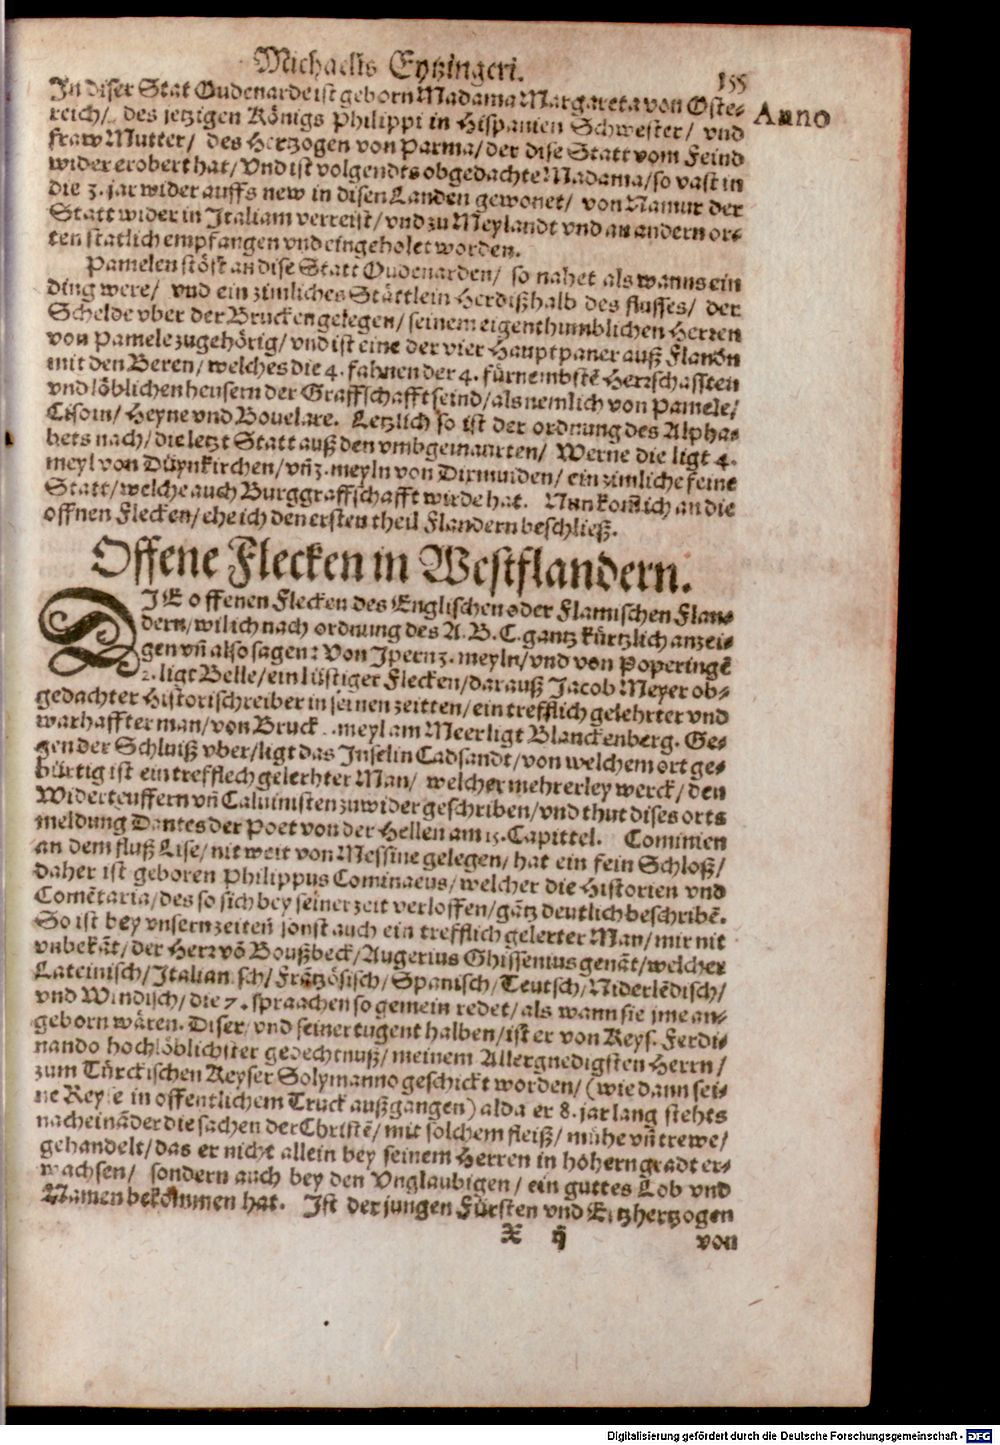 Michaelis Eytzingeri.
155
In diser Stat Oudenarde ist geborn Madama Margareta von Oste-
Anno
reich/ des jetzigen Königs Philippi in Hispanien Schwester/ vnd
fraw Mutter/ des Hertzogen von Parma/ der dise Statt vom Feind
wider erobert hat/ Vnd ist volgendts obgedachte Madama/ so vast in
die 3. jar wider auffs new in disen Landen gewonet/ von Namur der
Statt wider in Italiam verreist/ vnd zu Meylandt vnd an andern or-
ten statlich empfangen vnd eingeholet worden.
Pamelen stöst an dise Statt Oudenarden/ so nahet als wanns ein
ding were/ vnd ein zimliches Stättlein Herdißhalb des flusses/ der
Schelde vber der Brucken gelegen/ seinem eigenthumblichen Herren
von Pamele zugehörig/ vnd ist eine der vier Hauptpaner auß Flandn
mit den Beren/ welches die 4. fahnen der 4. fürnembstē Herrschafften
vnd löblichen heusern der Graffschafft seind/ als nemlich von Pamele/
Cisoin/ Heyne vnd Bouelare. Letzlich so ist der ordnung des Alpha-
bets nach/ die letzt Statt auß den vmbgemaurten/ Werne die ligt 4.
meyl von Düynkirchen/ vñ 3. meyln von Dixmuiden/ ein zimliche feine
Statt/ welche auch Burggraffschafft wirde hat. Nun kom̄ ich an die
offnen Flecken/ ehe ich den ersten theil Flandern beschließ.
Offene Flecken in Westflandern.
DIE offenen Flecken des Englischen oder Flamischen Flan-
dern/ wil ich nach ordnung des A. B. C. gantz kürtzlich anzei-
gen vñ also sagen: Von Ipern 3. meyln/ vnd von Poperingē
2. ligt Belle/ ein lüstiger Flecken/ darauß Jacob Meyer ob-
gedachter Historischreiber in seinen zeitten/ ein trefflich gelehrter vnd
warhaffter man/ von Bruck meyl am Meer ligt Blanckenberg. Ge-
gen der Schluiß vber/ ligt das Inselin Cadsandt/ von welchem ort ge-
bürtig ist ein trefflech gelerhter Man/ welcher mehrerley werck/ den
Widerteuffern vñ Caluinisten zuwider geschriben/ vnd thut dises orts
meldung Dantes der Poet von der Hellen am 15. Capittel. Cominien
an dem fluß Lise/ nit weit von Messine gelegen/ hat ein fein Schloß/
daher ist geboren Philippus Cominaeus/ welcher die Historien vnd
Comētaria/ des so sich bey seiner zeit verloffen/ gātz deutlich beschribē.
So ist bey vnsern zeiten sonst auch ein trefflich gelerter Man/ mir nit
vnbekāt/ der Herr vō Boußbeck/ Augerius Ghissenius genāt/ welcher
Lateinisch/ Italianisch/ Frātzösisch/ Spanisch/ Teutsch/ Niderlēdisch/
vnd Windisch/ die 7. spraachen so gemein redet/ als wann sie jme an-
geborn wären. Diser/ vnd seiner tugent halben/ ist er von Keys. Ferdi-
nando hochlöblichster gedechtnuß/ meinem Allergnedigsten Herrn/
zum Türckischen Keyser Solymanno geschickt worden/ (wie dann sei-
ne Reyse in offentlichem Truck außgangen) alda er 8. jar lang stehts
nacheināder die sachen der Christē/ mit solchem fleiß/ mühe vñ trewe/
gehandelt/ das er nicht allein bey seinem Herren in höhern gradt er-
wachsen/ sondern auch bey den Vnglaubigen/ ein guttes Lob vnd
Namen bekommen hat. Ist der jungen Fürsten vnd Ertzhertzogen
X ij
von
Digitalisierung gefördert durch die Deutsche Forschungsgemeinschaft - DFG